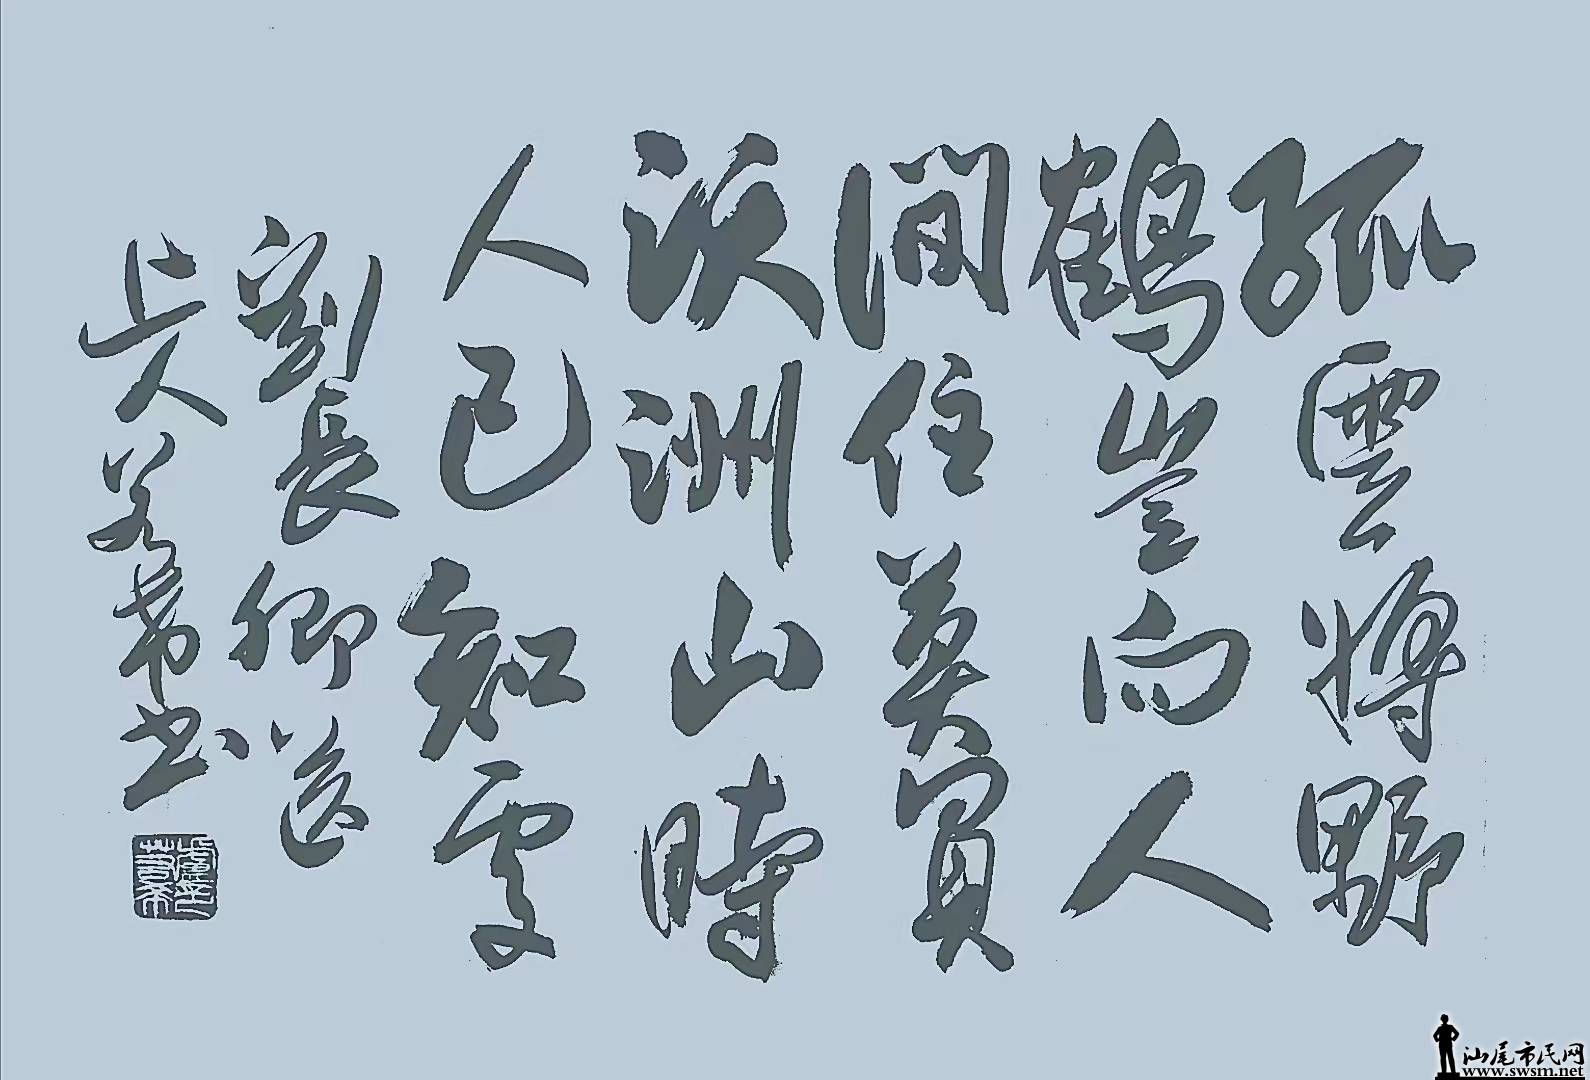 孤雲將野
鶴豈向人
間住莫買
沃洲山時
人已知處
劉長卿送
上人 希书
汕尾市民网
www.swsm.net